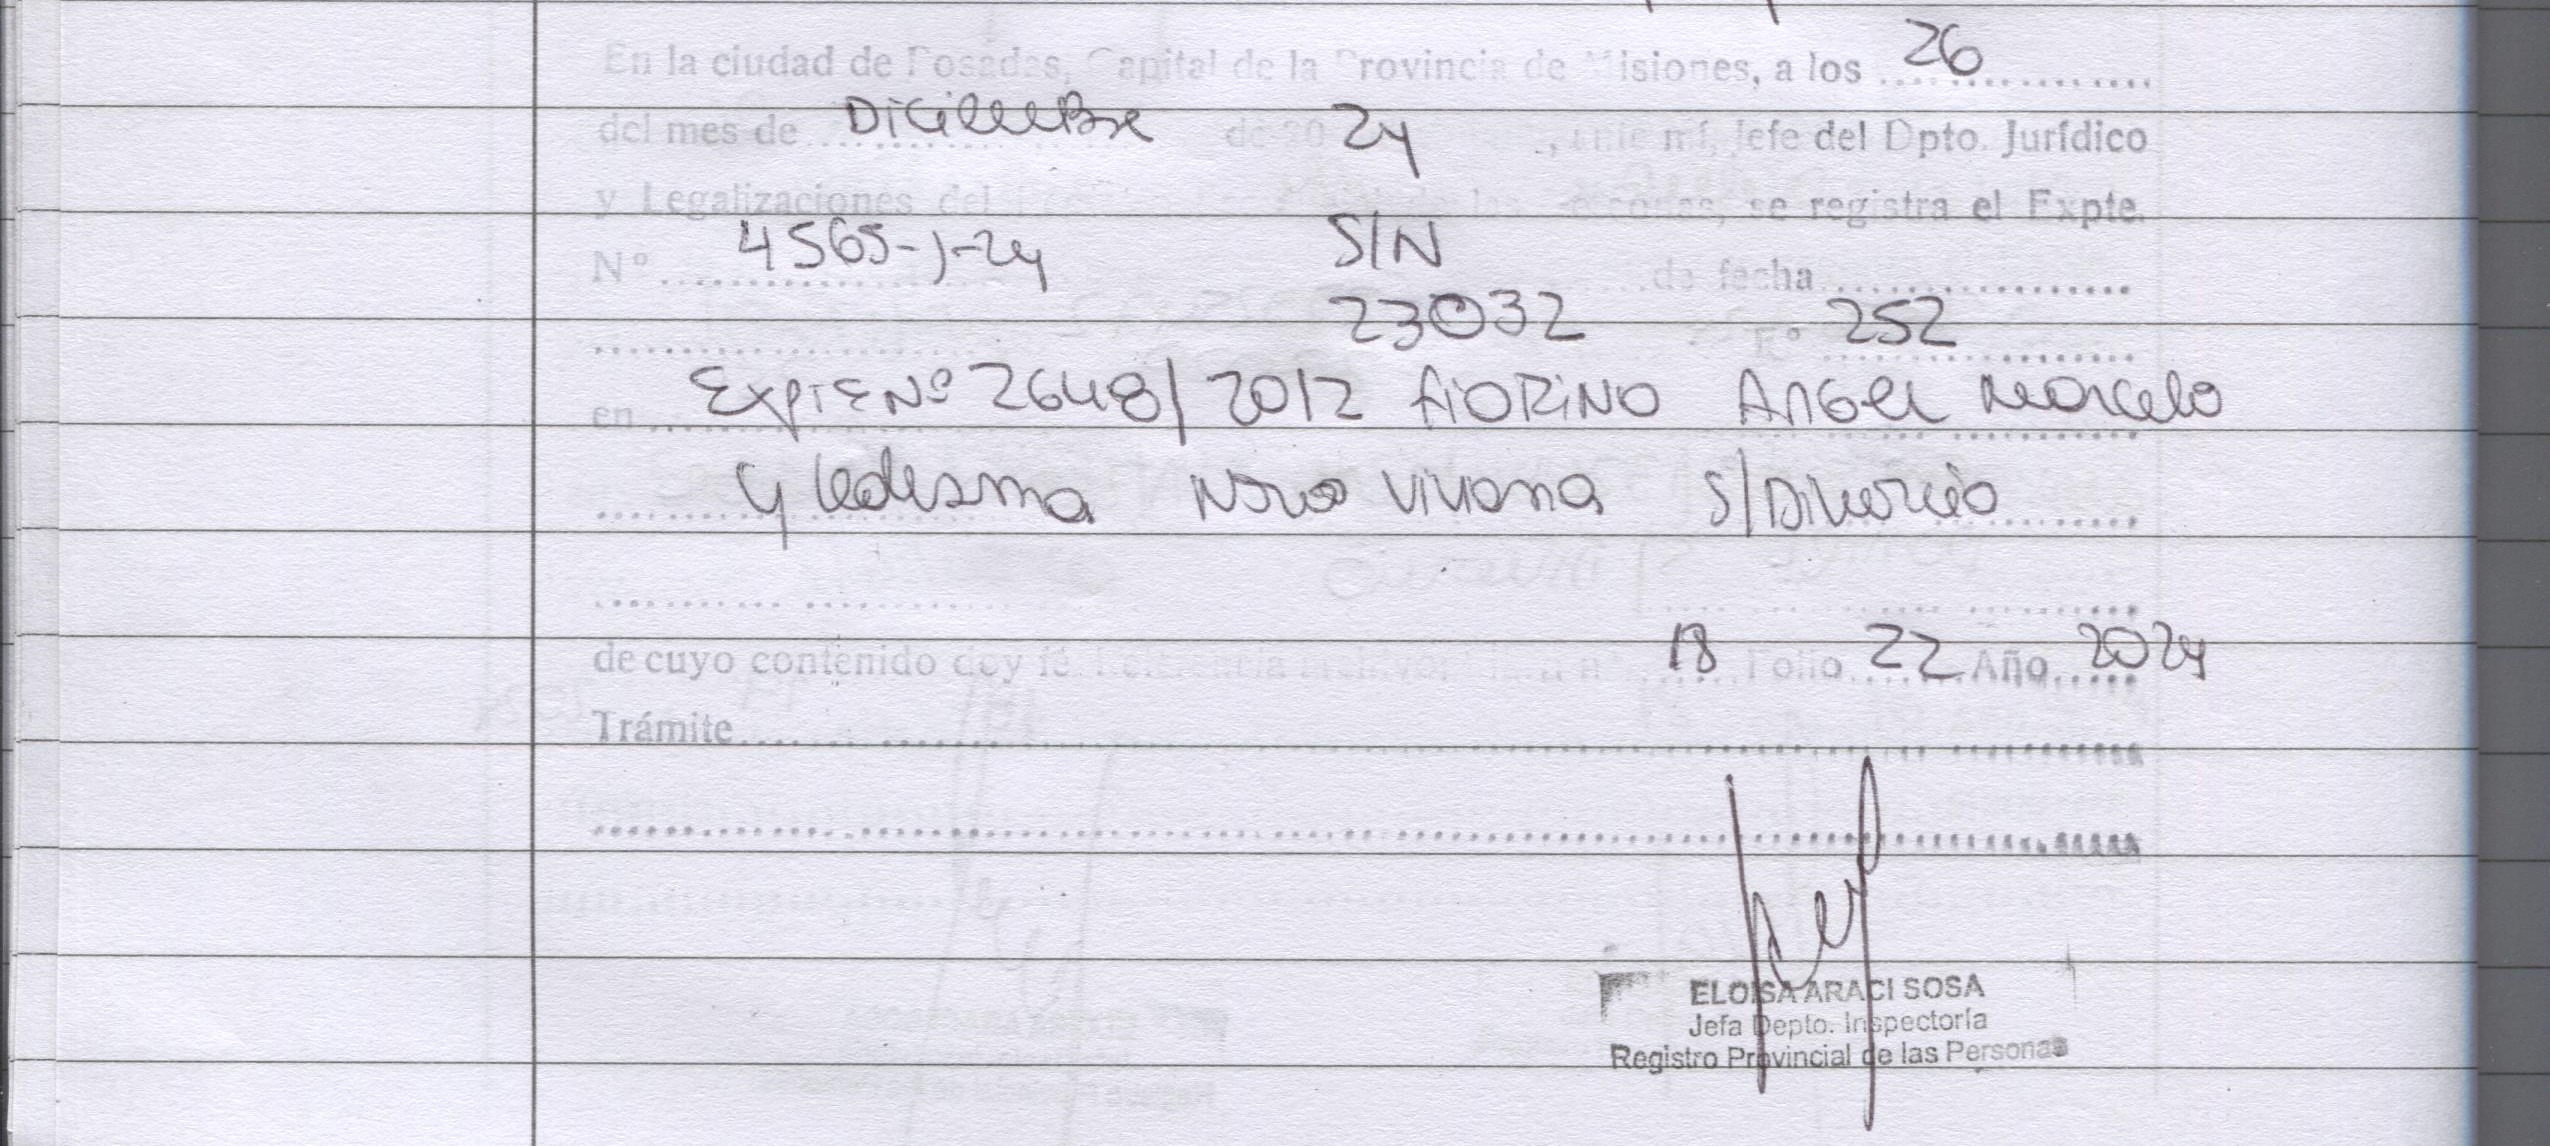 En la ciudad de Posadas, Capital de la Provincia de Misiones, a los 26
del mes de Diciembre de 20 24, ante mí, Jefe del Dpto. Jurídico
y Legalizaciones del las Personas, se registra el Expte.
Nº 4565-J-24 S/N de fecha
23032 Fº 252
en Expte Nº 2648/2012 FIORINO Angel Marcelo
c/ Ledesma Viviana S/Divorcio
de cuyo contenido doy fé. 18 Folio 22 Año 2024
Trámite
ELOISA ARACI SOSA
Jefa Depto. Inspectoría
Registro Provincial de las Personas